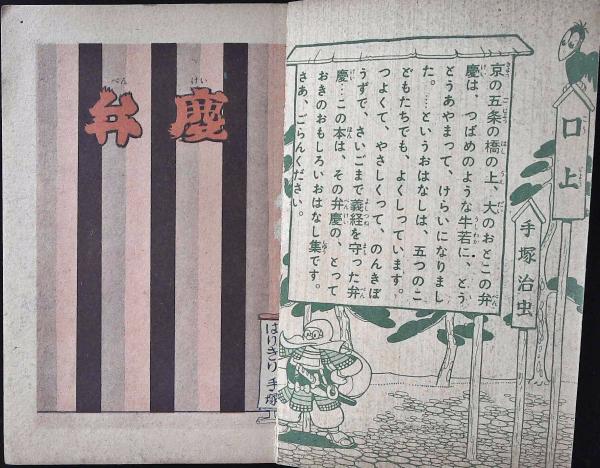 口上
手塚治虫
京の五条の橋の上、大のおとこの弁
慶は、つばめのような牛若に、とう
とうあやまって、けらいになりまし
た。……というおはなしは、五つのこ
どもたちでも、よくしっています。
つよくて、やさしくって、のんきぼ
うずで、さいごまで義経を守った弁
慶…この本は、その弁慶の、とって
おきのおもしろいおはなし集です。
さあ、ごらんください。
弁慶
べんけい
はりきり 手塚